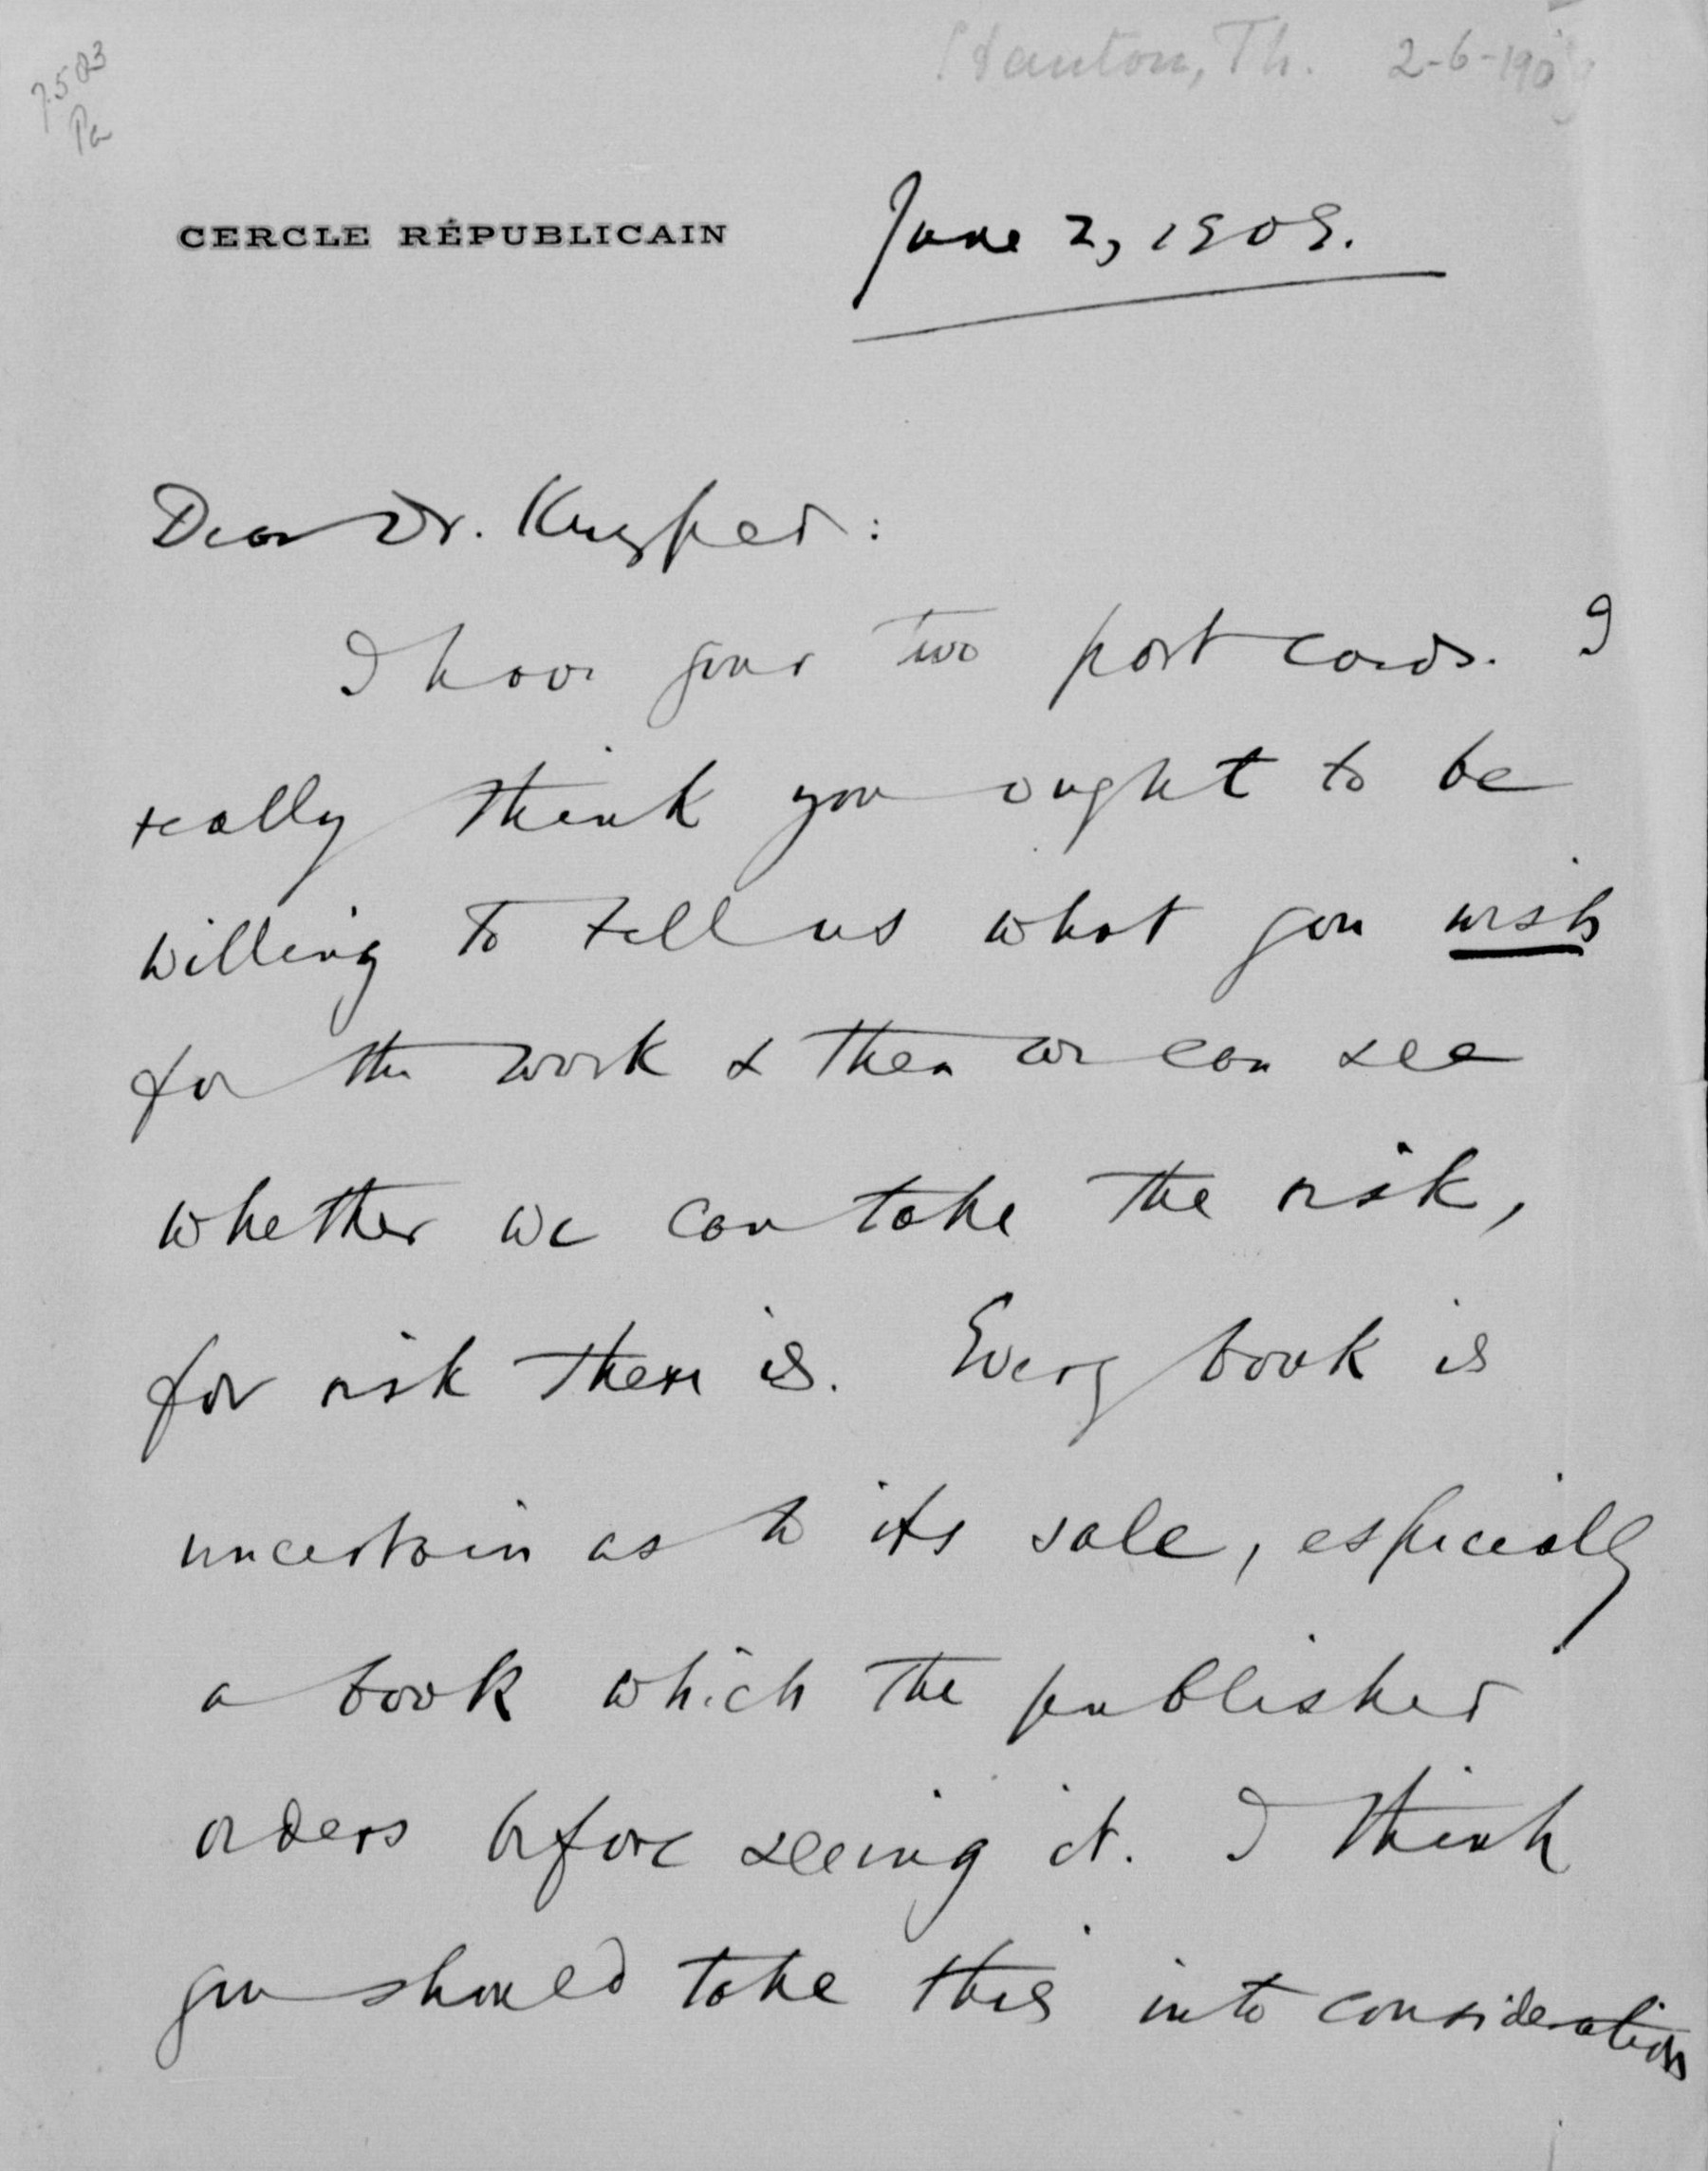 7503
Pa
Stanton, Th. 2-6-190
CERCLE RÉPUBLICAIN
June 2, 1909.
Dear Dr. Kuyper:
I have your two post cards. I
really think you ought to be
willing to tell us what you wish
for the work & then we can see
whether we can take the risk,
for risk there is. Every book is
uncertain as to its sale, especially
a book which the publisher
orders before seeing it. I think
you should take this into consideration